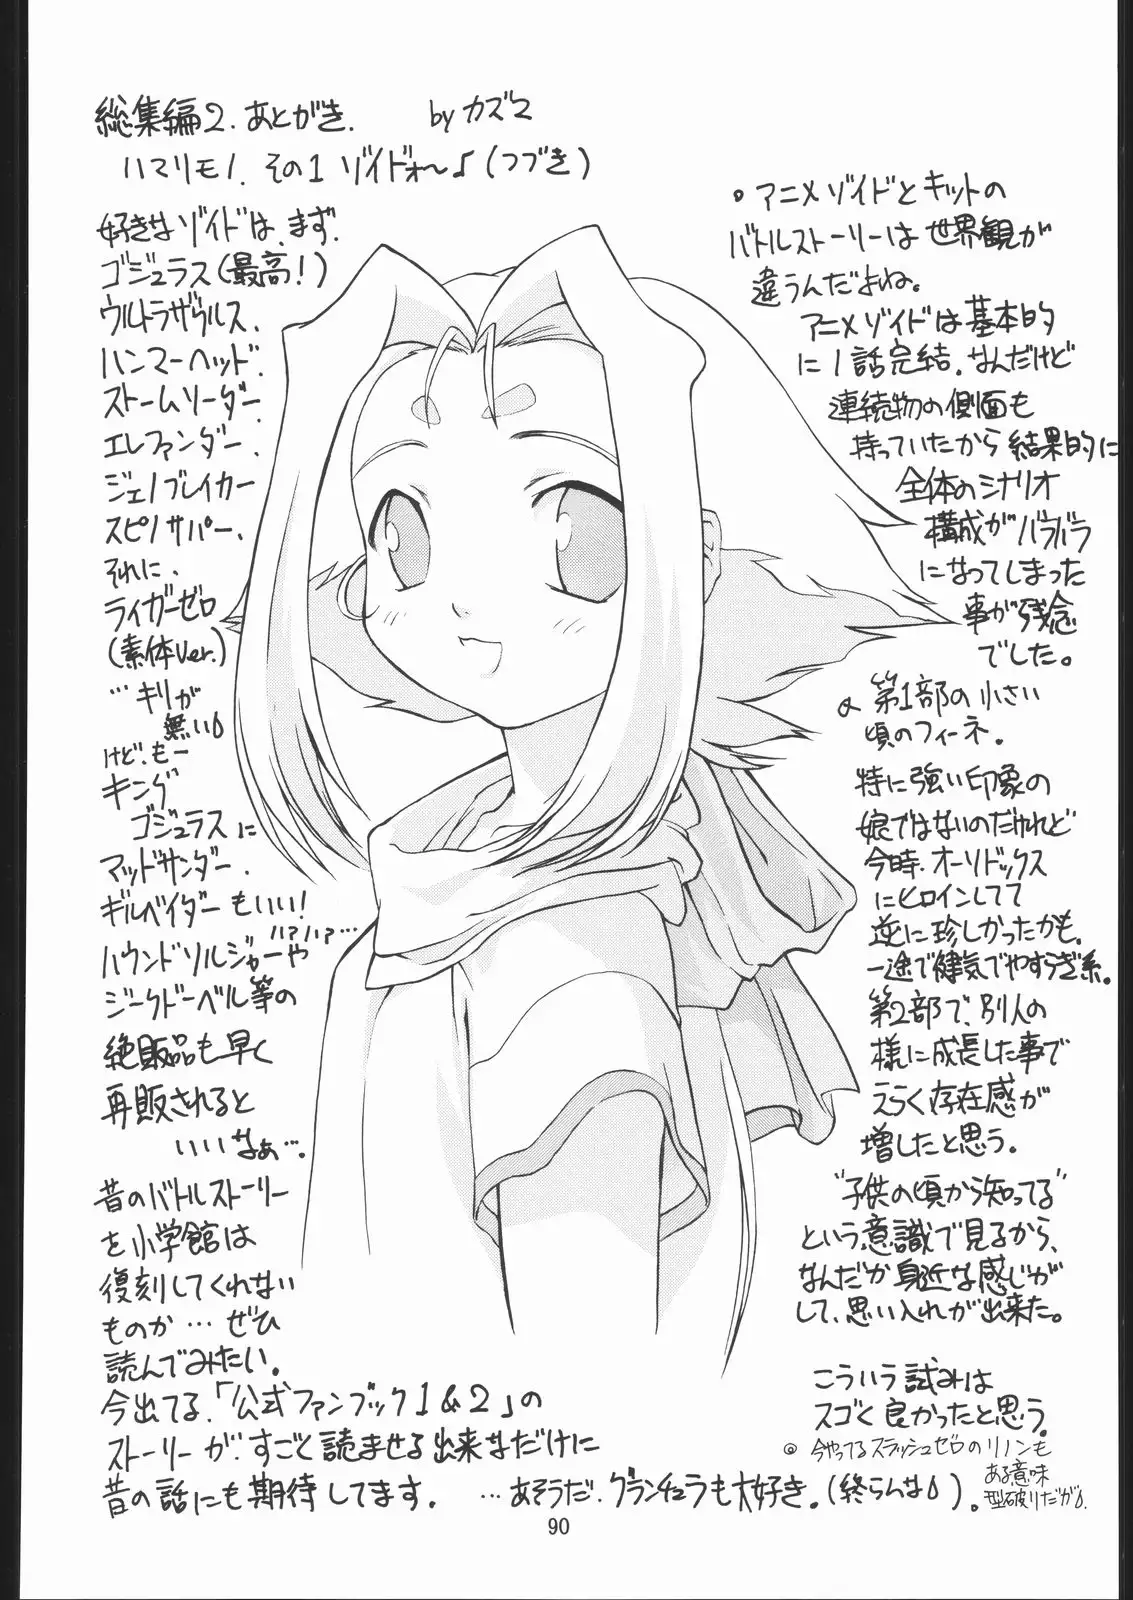 総集編2.あとがき. by カズマ
ハマリモノ.その1 ゾイドォ〜♪(つづき)
好きなゾイドは、まず.
ゴジュラス(最高!)
ウルトラザウルス.
ハンマーヘッド.
ストームソーダー.
エレファンダー.
ジェノブレイカー
スピノサパー.
それに.
ライガーゼロ
(素体Ver.)
…キリが
無い
けど.もー
キング
ゴジュラスに
マッドサンダー.
ギルベイダーもいい!
ハァハァ…
ハウンドソルジャーや
ジークドーベル等の
絶販品も早く
再販されると
いいなぁ….
昔のバトルストーリー
を小学館は
復刻してくれない
ものか…ぜひ
読んでみたい。
今出てる.「公式ファンブック1&2」の
ストーリーが.すごく読ませる出来なだけに
昔の話にも期待してます. …あそうだ.グランチュラも大好き.(終らんな)。
。アニメゾイドとキットの
バトルストーリーは世界観が
違うんだよね。
アニメゾイドは基本的
に1話完結.なんだけど
連続物の側面も
持っていたから結果的に
全体のシナリオ
構成がバラバラ
になってしまった
事が残念
でした。
第1部の小さい
頃のフィーネ.
特に強い印象の
娘ではないのだけれど
今時.オーソドックス
にヒロインしてて
逆に珍しかったかも.
一途で健気でやすらぎ系.
第2部で、別人の
様に成長した事で
えらく存在感が
増したと思う。
"子供の頃から知ってる"
という意識で見るから、
なんだか身近な感じが
して、思い入れが出来た。
こういう試みは
スゴく良かったと思う.
◎今やってるスラッシュゼロのリノンも
ある意味
型破りだが.
90